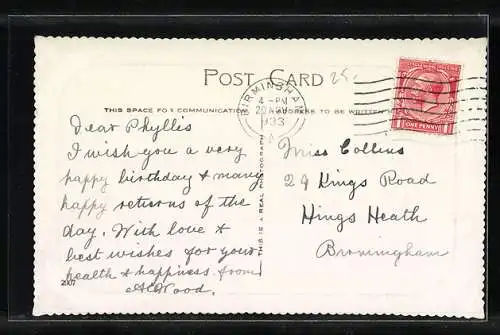 POST CARD
25/-
THIS SPACE FOR COMMUNICATION ADDRESS TO BE WRITTEN H
BIRMINGHAM
4 - PM
20 NOV
1933
ONE PENNY
Dear Phyllis
I wish you a very
happy birthday & many
happy returns of the
day. With love &
best wishes for your
health & happiness from
A C Wood.
THIS IS A REAL PHOTOGRAPH
Miss Collins
29 Kings Road
Kings Heath
Birmingham
2007